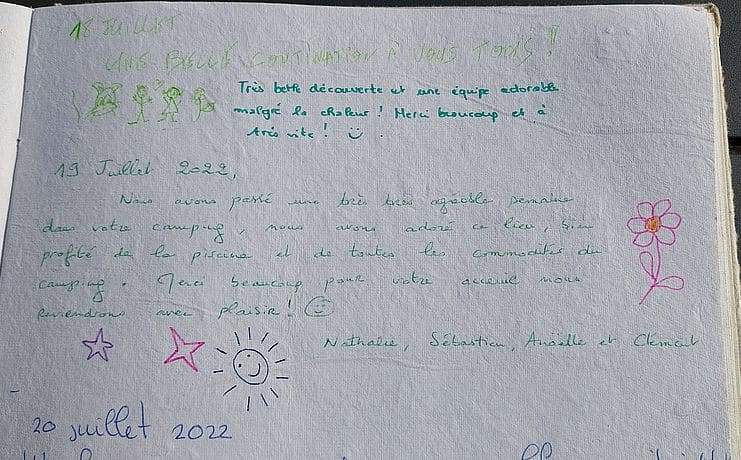 18 JUILLET
UNE BELLE CONTINUATION À VOUS TOUS !
Très belle découverte et une équipe adorable
malgré la chaleur ! Merci beaucoup et à
très vite !
19 Juillet 2022,
Nous avons passé une très très agréable semaine
dans votre camping, nous avons adoré ce lieu, bien
profité de la piscine et de toutes les commodités du
camping. Merci beaucoup pour votre accueil nous
reviendrons avec plaisir !
Nathalie, Sébastien, Anaëlle et Clément
20 juillet 2022